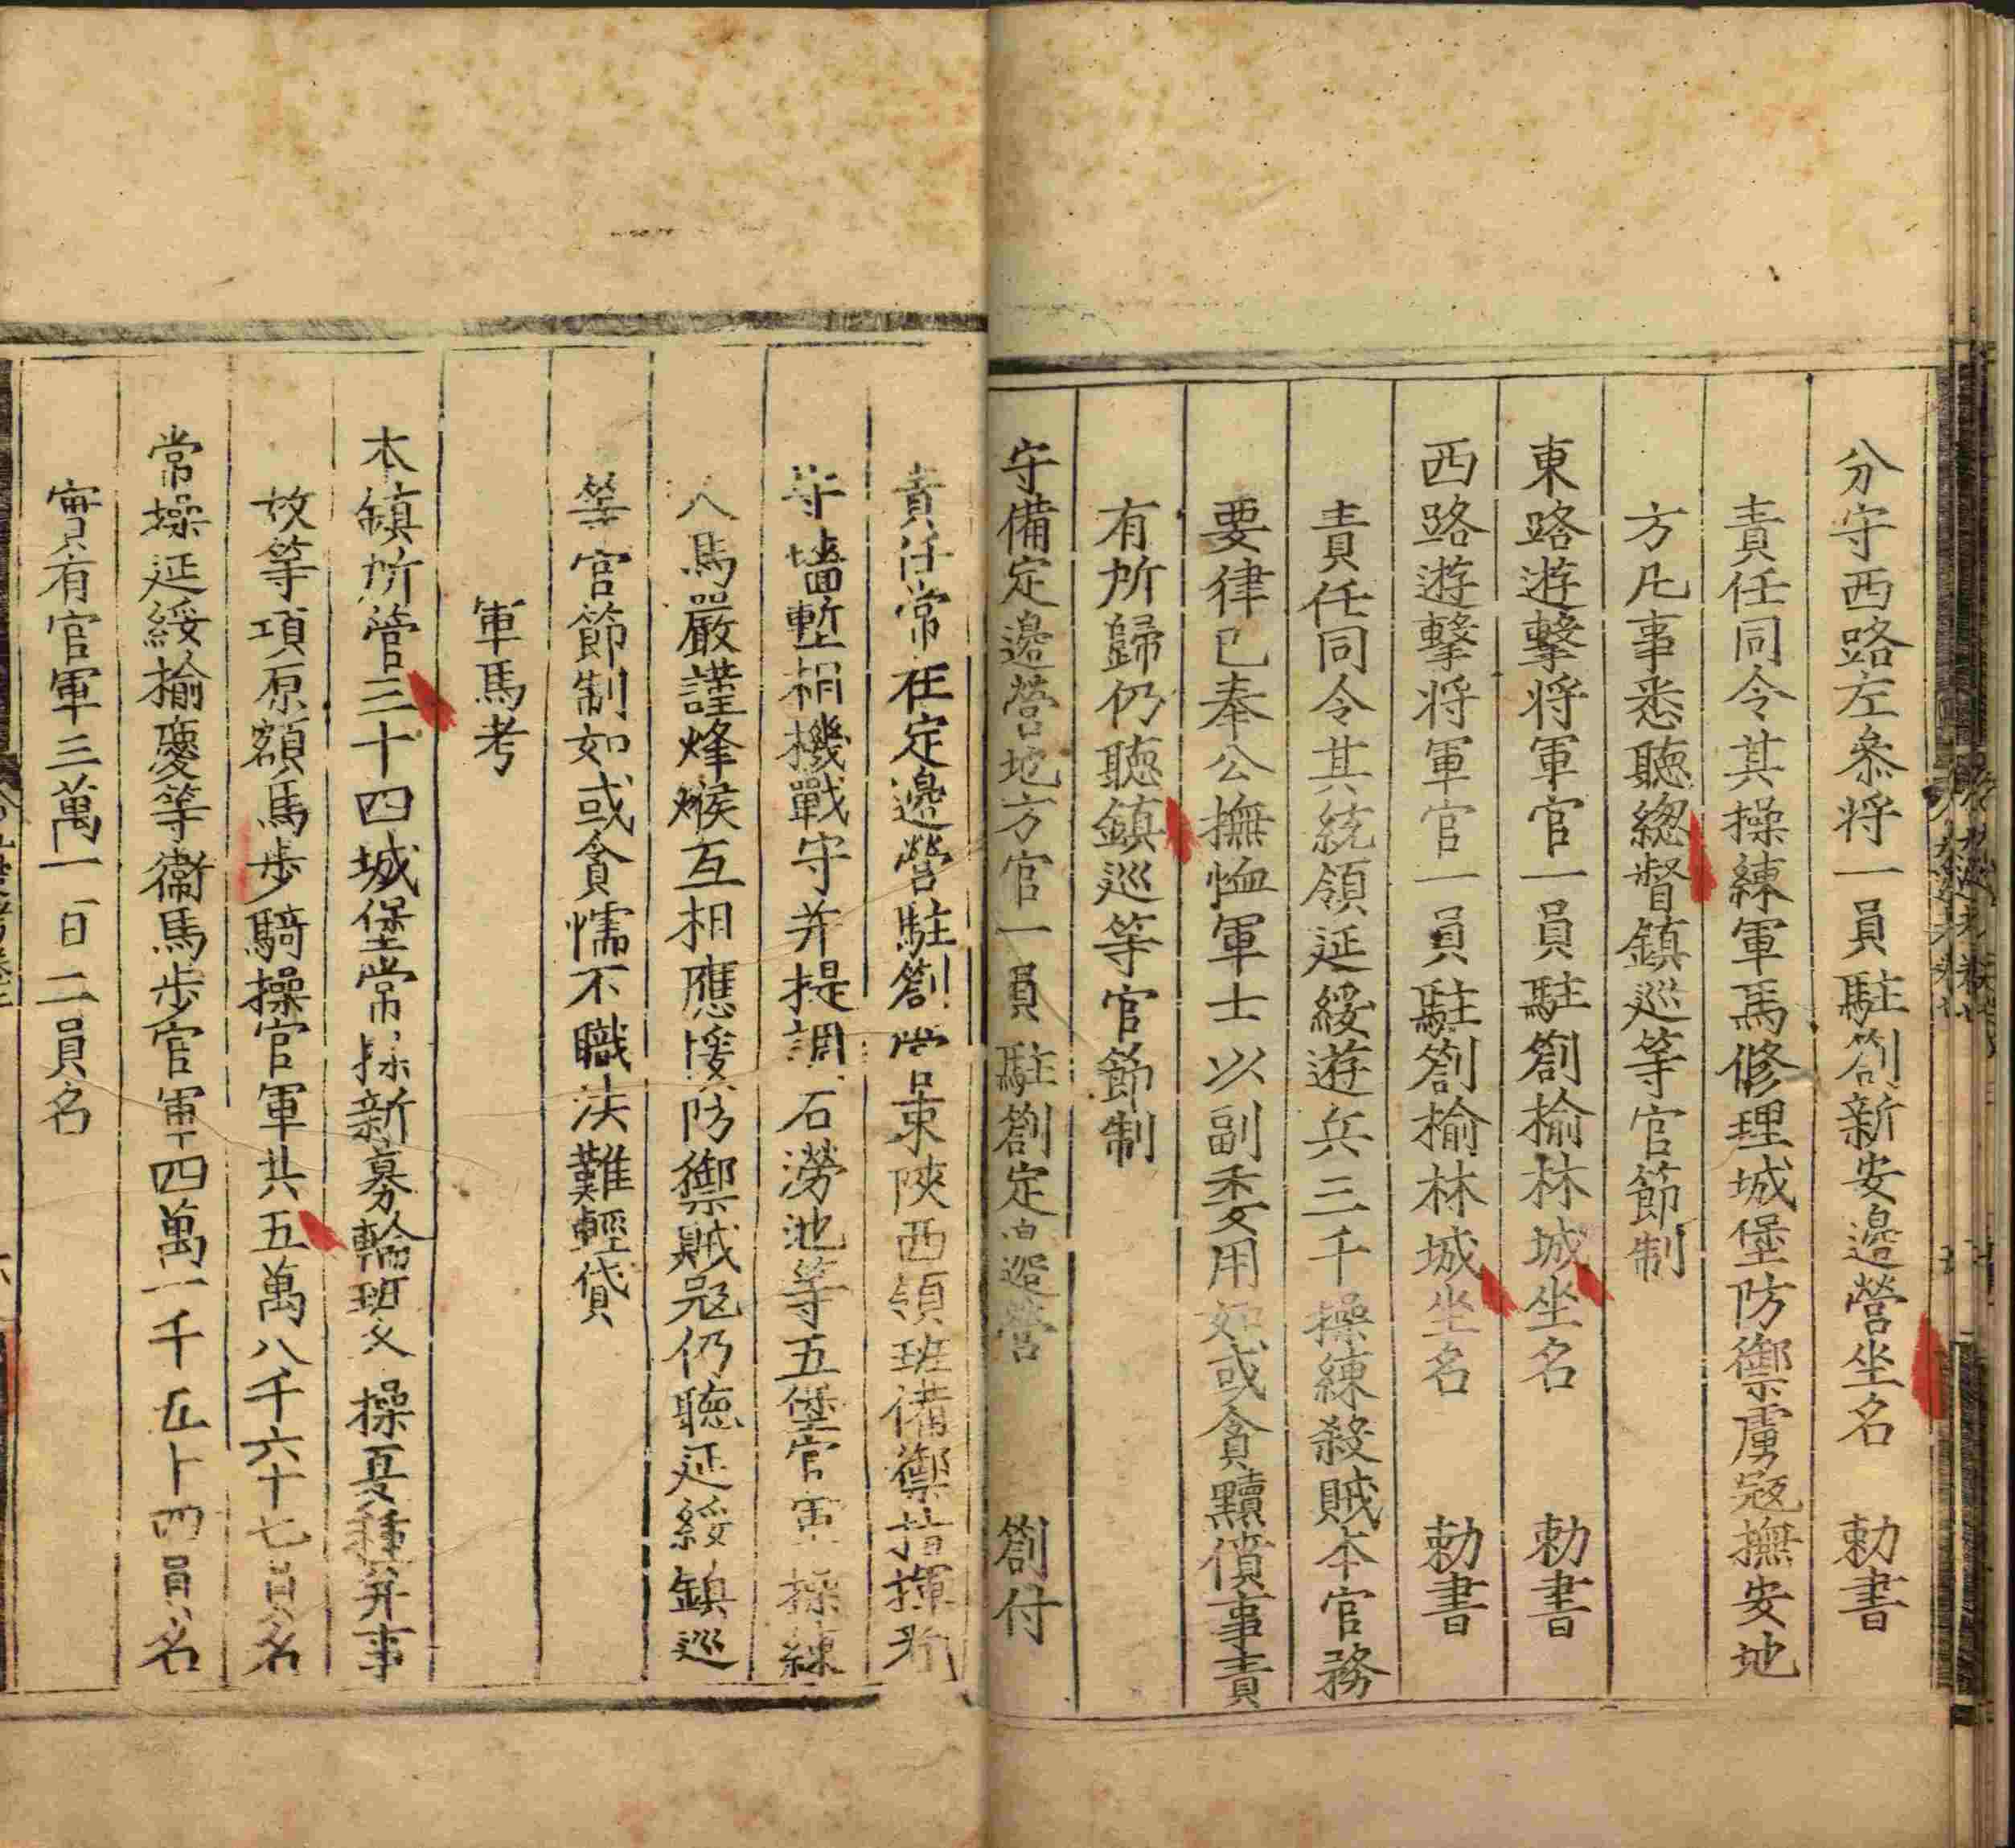 分守西路左叅将一員駐劄新安邊營坐名 勅書
責任同令其操練軍馬修理城堡防禦虜冦撫安地
方凡事悉聽緫督鎮巡等官節制
東路遊擊将軍官一員駐劄榆林城坐名 勅書
西路遊擊将軍官一員駐劄榆林城坐名 勅書
責任同令其統領延綏遊兵三千操練殺賊本官務
要律己奉公撫恤軍士以副委用如或貪黷僨事責
有所歸仍聽鎮巡等官節制
守備定邊營地方官一員駐劄定邊營 劄付
責任常在定邊營駐劄管束陝西領班備禦指揮
守墻塹相機戰守并提調石澇池等五堡官軍操練
人馬嚴謹烽堠互相應援防禦賊冦仍聽延綏鎮巡
等官節制如或貪懦不職决難輕貸
軍馬考
本鎮所管三十四城堡常操新募輪班 操夏種并事
故等項原額馬步騎操官軍共五萬八千六十七員名
常操延綏榆慶等衞馬步官軍四萬一千五十四員名
實有官軍三萬一百二員名